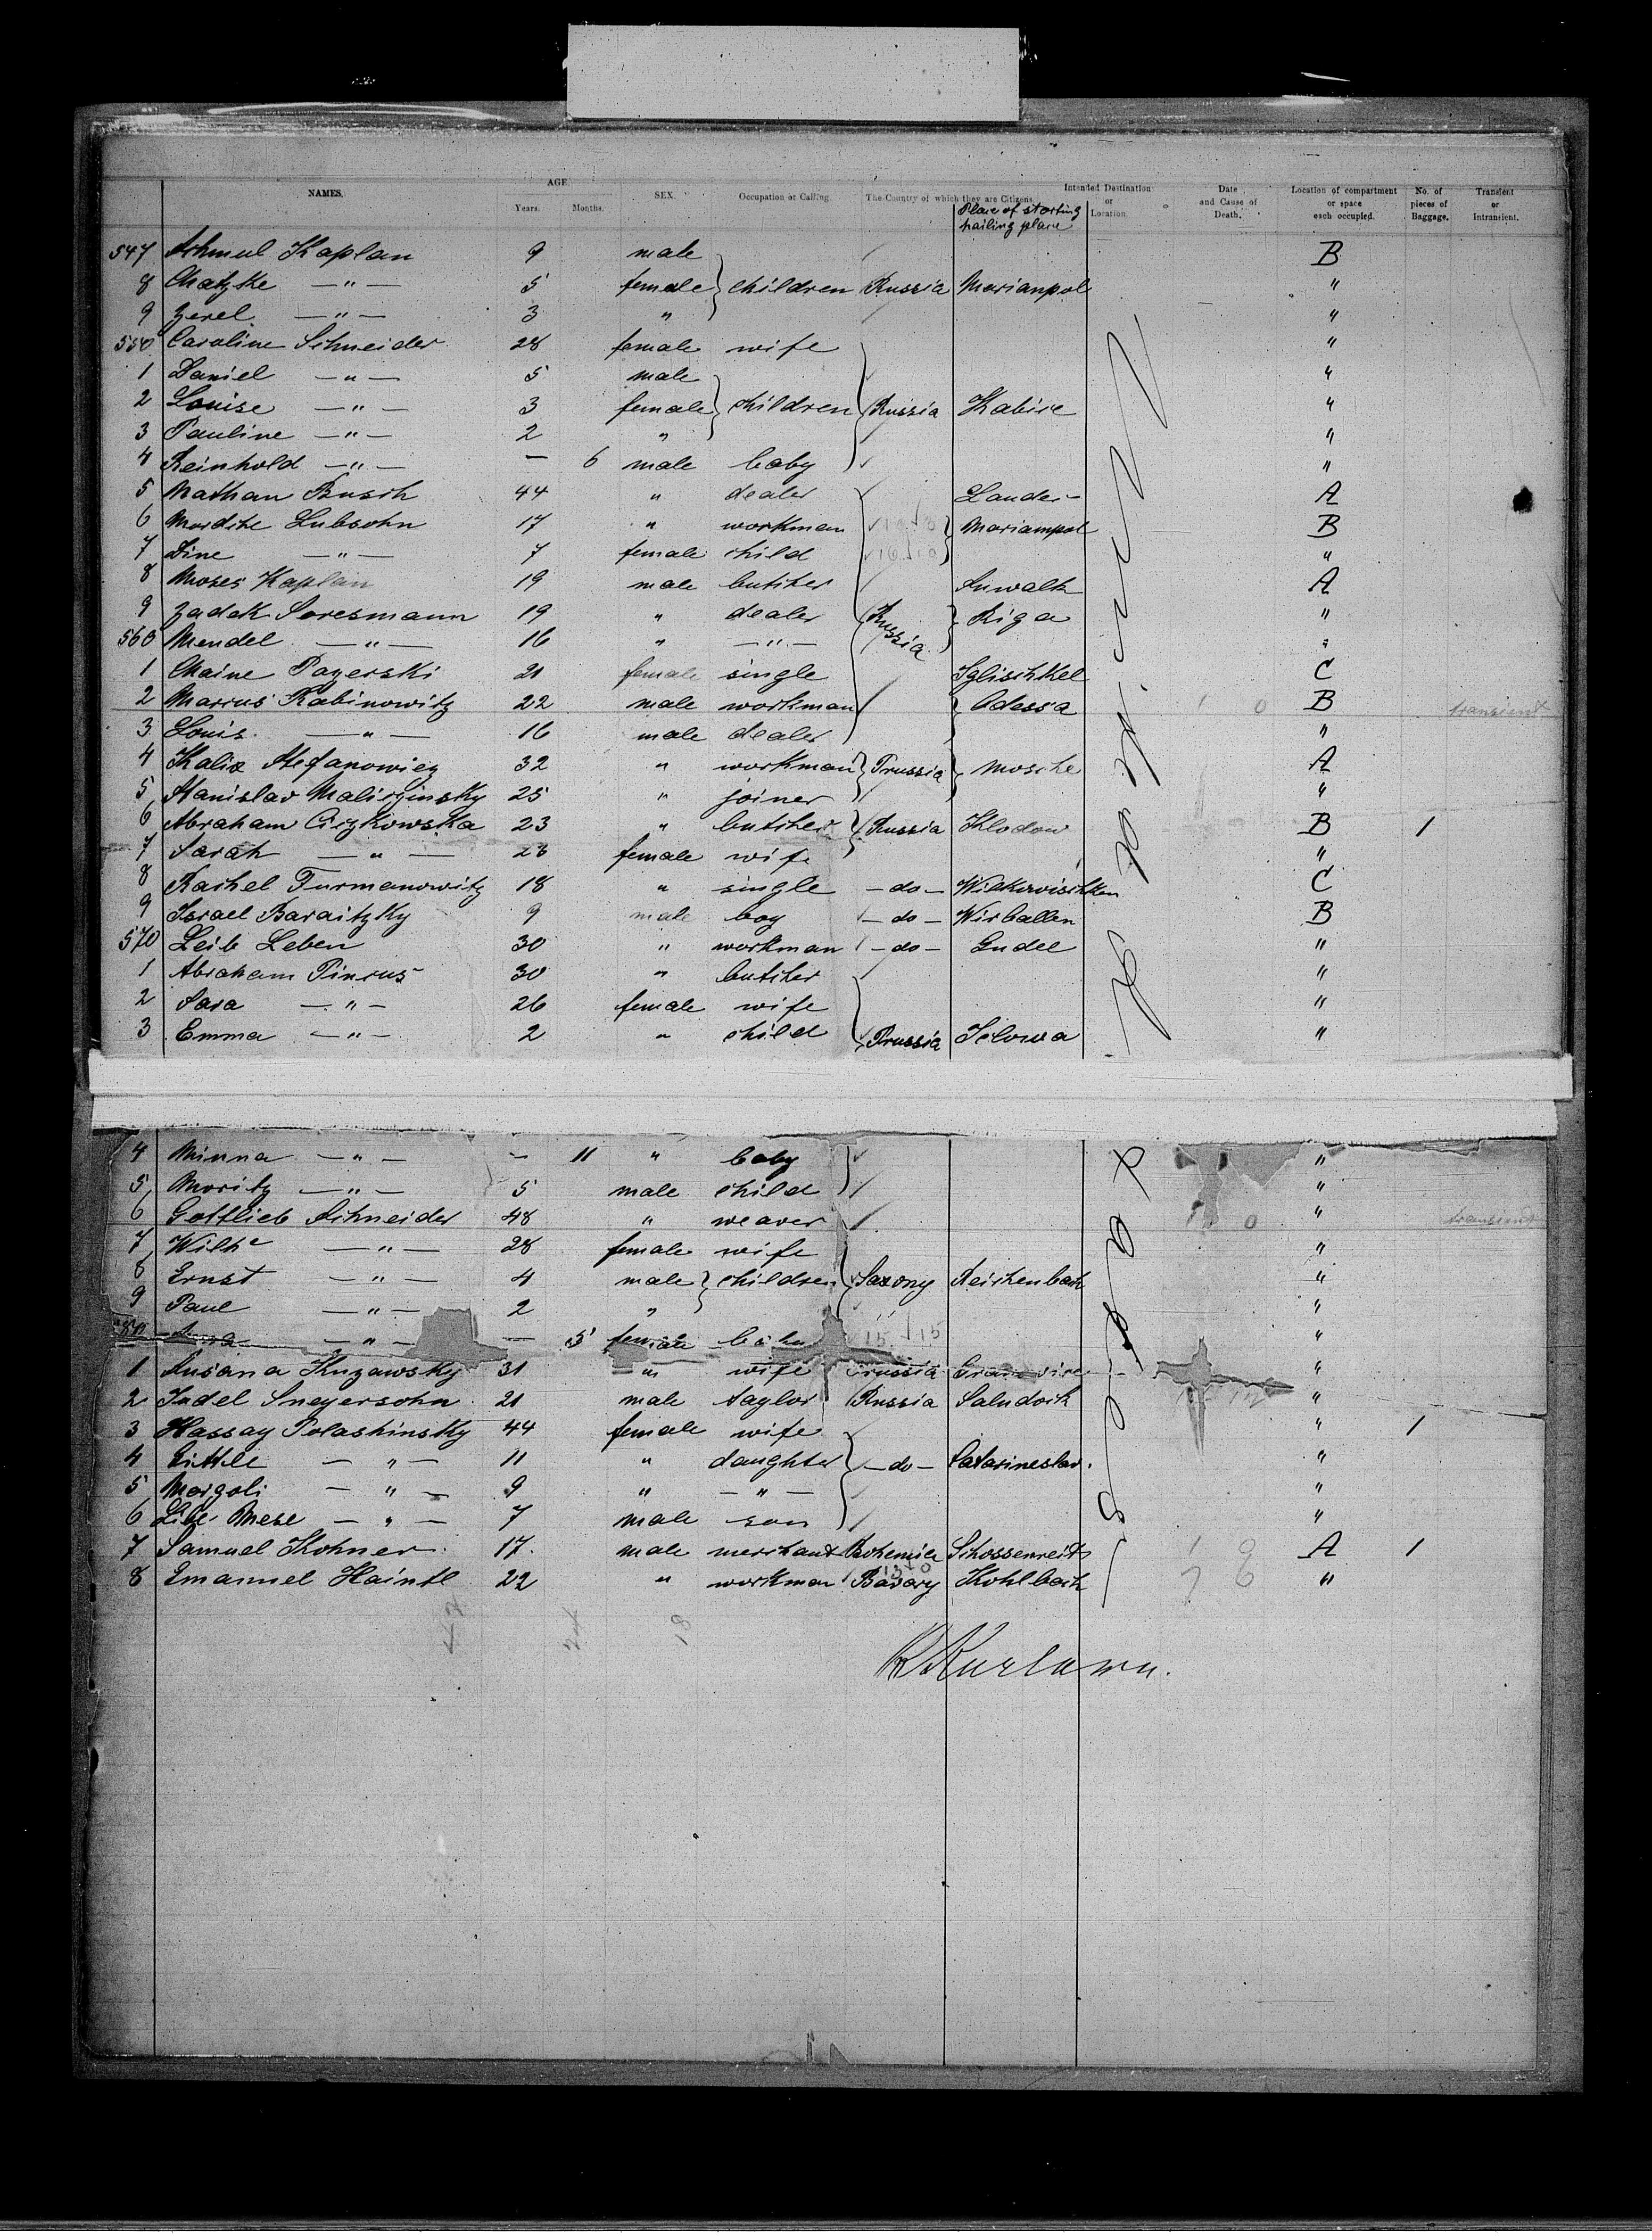 NAMES. AGE. Years. Months. SEX. Occupation or Calling. The Country of which they are Citizens. Place of starting hailing place Intended Destination or Location. Date and Cause of Death. Location of compartment or space each occupied. No. of pieces of Baggage. Transient or Intransient.
547 Schmul Kaplan 9 male B
8 Chatzke —"— 5 female } children Russia Marianpol "
9 Zerel —"— 3 " "
550 Caroline Schneider 28 female wife "
1 Daniel —"— 5 male "
2 Louise —"— 3 female } children Russia Kabire "
3 Pauline —"— 2 " "
4 Reinhold —"— — 6 male baby "
5 Nathan Busch 44 " dealer Lander A
6 Mordche Lubsohn 17 " workman Mariampol B
7 Dine —"— 7 female child "
8 Moses Kaplan 19 male butcher Suwalk A
9 Zadek Soresmann 19 " dealer Russia } Riga "
560 Mendel —"— 16 " —"— "
1 Chaine Pazerski 21 female single Iglischkel C
2 Marcus Rabinowitz 22 male workman } Odessa B transient
3 Louis —"— 16 male dealer "
4 Kalix Stefanowicz 32 " workman } Prussia } Mosche A
5 Stanislav Maliszinsky 25 " joiner "
6 Abraham Ciszkowska 23 " butcher } Russia Klodow B 1
7 Sarah —"— 23 female wife "
8 Rachel Furmanowitz 18 " single —do— Wilkowischken C
9 Israel Baraitzky 9 male boy —do— Wirballen B
570 Leib Leben 30 " workman —do— Endel "
1 Abraham Pincus 30 " butcher "
2 Sara —"— 26 female wife "
3 Emma —"— 2 " child Prussia Selowa "
4 Minna —"— — 11 " baby "
5 Moritz —"— 5 male child "
6 Gottlieb Schneider 48 " weaver " transient
7 Wilhe —"— 28 female wife "
8 Ernst —"— 4 male } children Saxony Reichenbach "
9 Paul —"— 2 " "
—"— — 5 female "
1 Susana Kuzawsky 31 " wife Prussia "
2 Judel Sneyersohn 21 male taylor Russia Saludock "
3 Hassay Polashinsky 44 female wife " 1
4 Gittle —"— 11 " daughter —do— Catarineslav. "
5 Margoli —"— 9 " —"— "
6 Mese —"— 7 male son "
7 Samuel Kohner 17 male merchant Bohemia Schossenreit A 1
8 Emanuel Haintl 22 " workman Bavary Kohlbach "